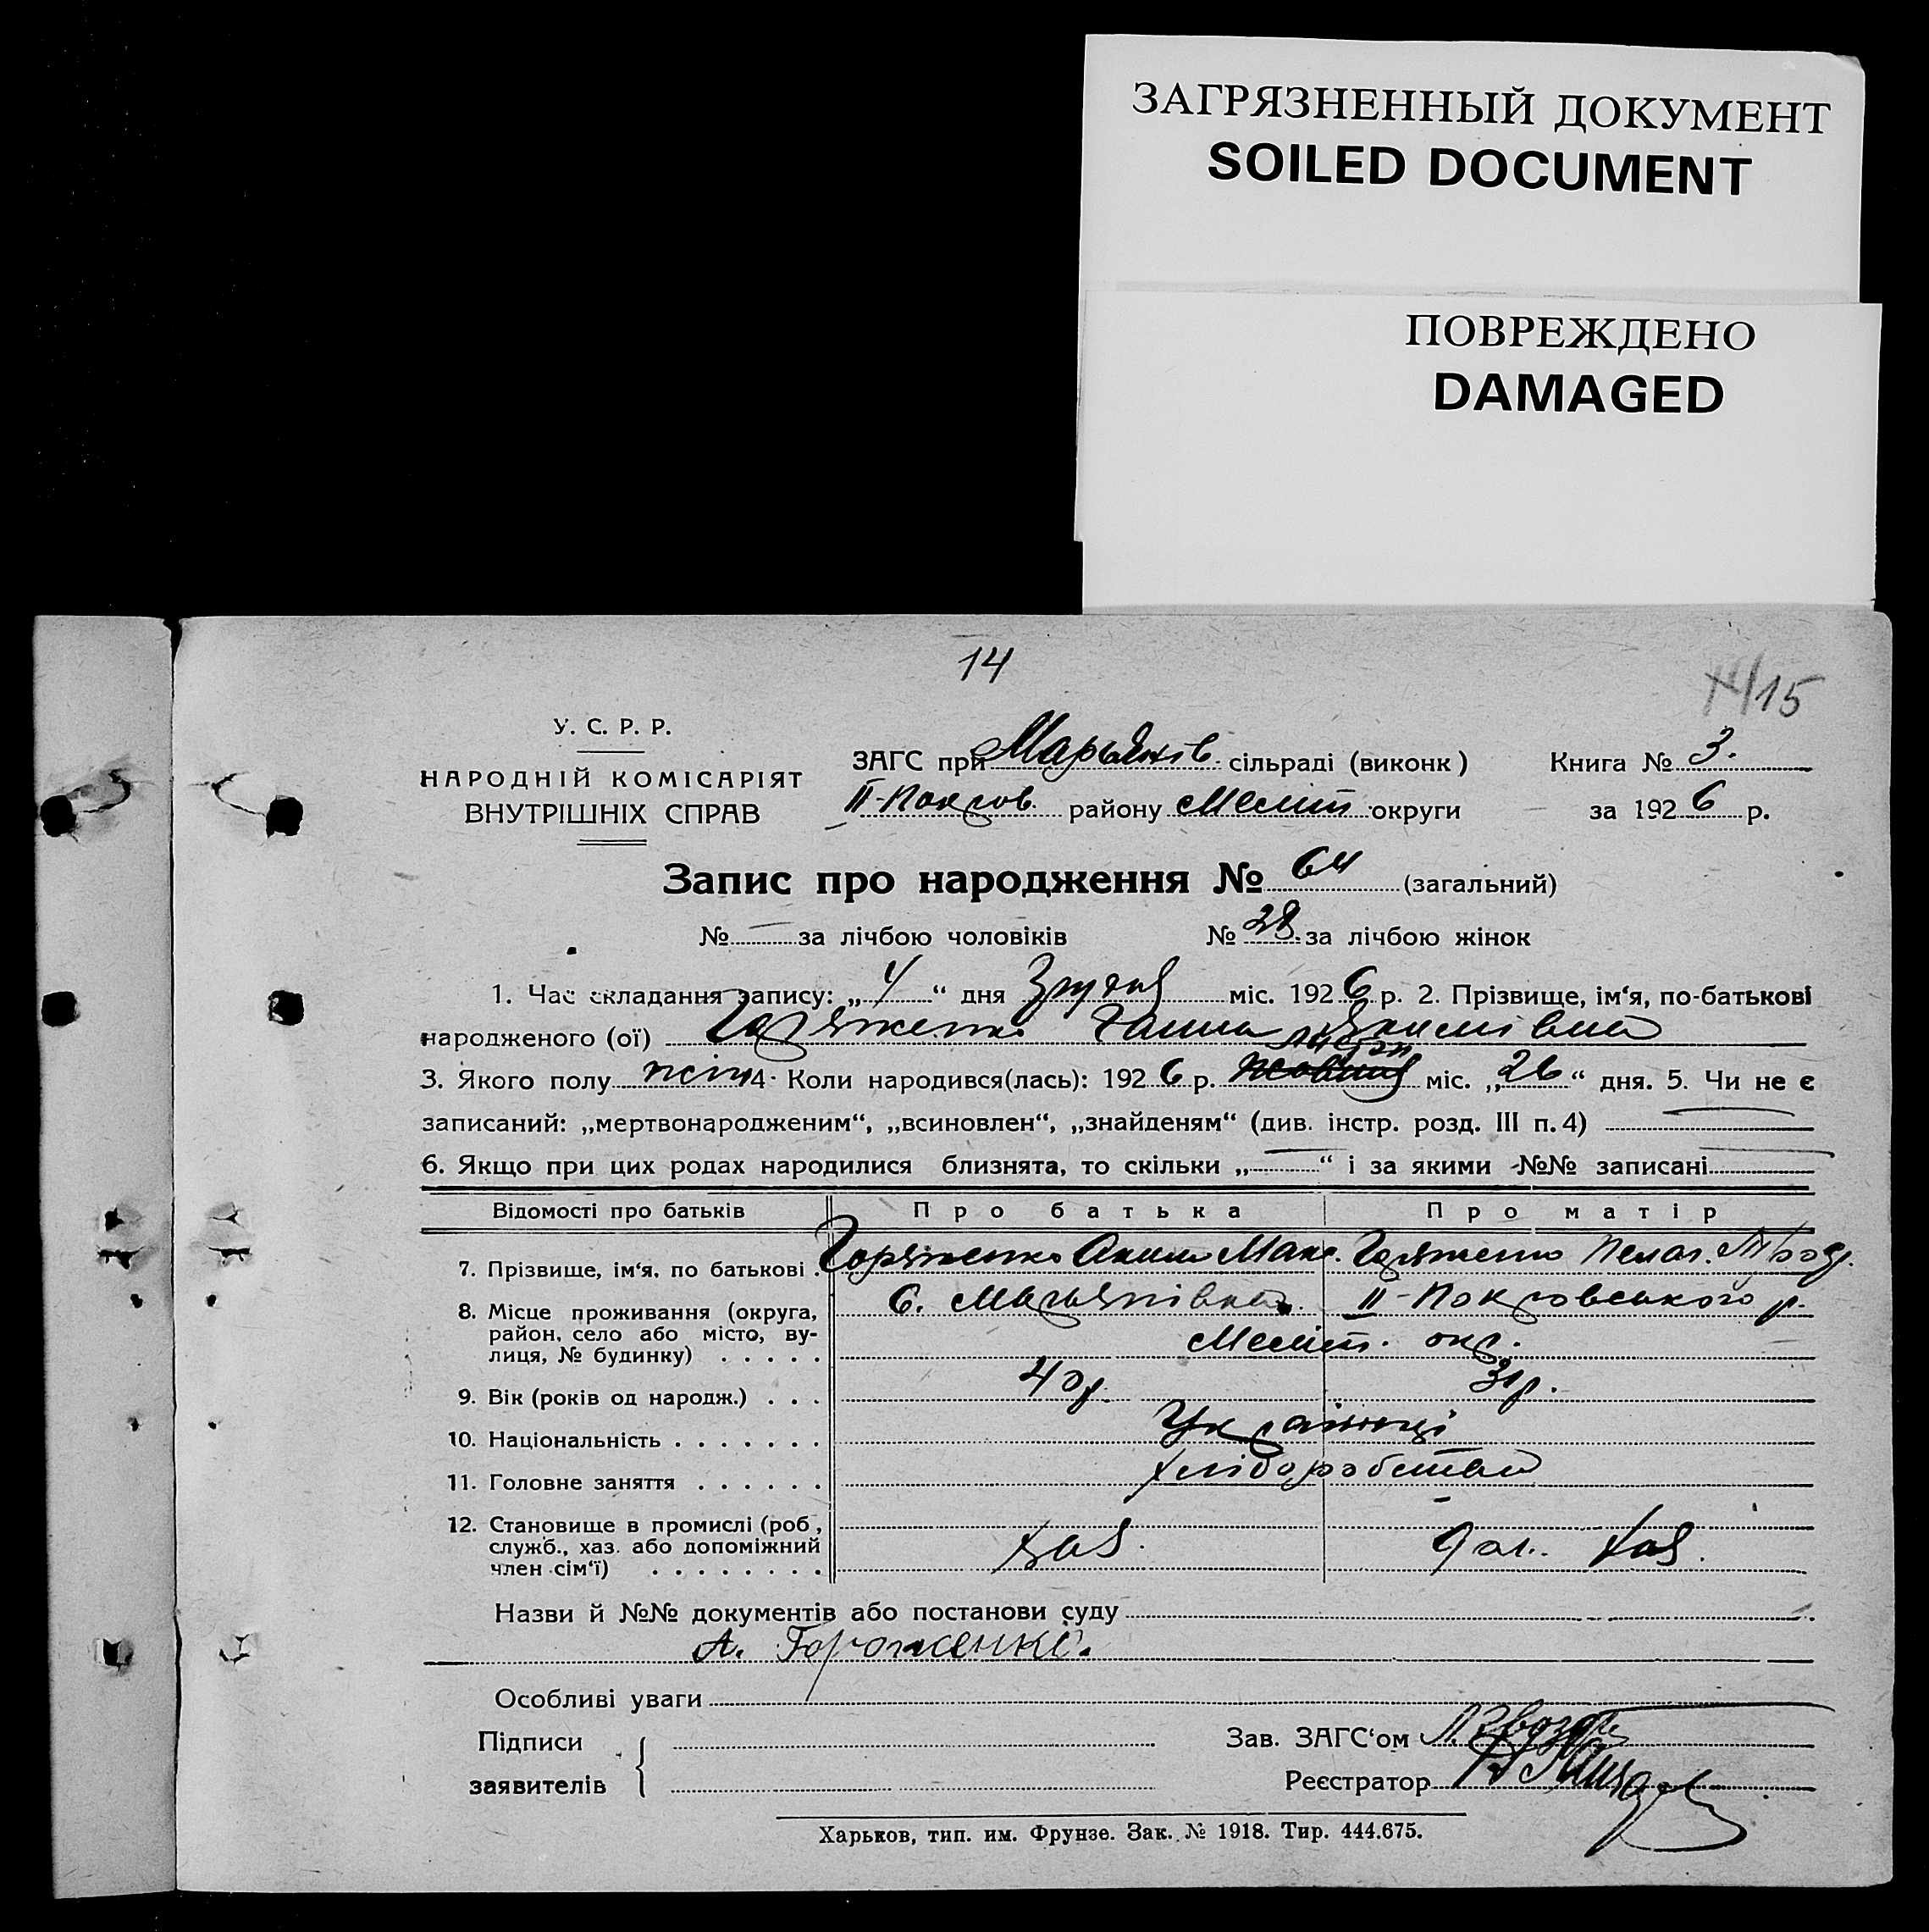 ЗАГРЯЗНЕННЫЙ ДОКУМЕНТ
SOILED DOCUMENT
ПОВРЕЖДЕНО
DAMAGED
14
15
У. С. Р. Р.
НАРОДНІЙ КОМІСАРІЯТ
ВНУТРІШНІХ СПРАВ
ЗАГС при Мар'янів. сільраді (виконк)
II-Покров. району Меліт. округи
Книга № 3.
за 1926 р.
Запис про народження № 64 (загальний)
№ — за лічбою чоловіків № 28 за лічбою жінок
1. Час складання запису: „4“ дня Грудня міс. 1926 р. 2. Прізвище, ім'я, по-батькові
народженого (ої) Ганна Якимівна
3. Якого полу жін 4. Коли народився(лась): 1926 р. міс. „26“ дня. 5. Чи не є
записаний: „мертвонародженим“, „всиновлен“, „знайденям“ (див. інстр. розд. III п. 4) —
6. Якщо при цих родах народилися близнята, то скільки „—“ і за якими №№ записані —
Відомості про батьків Про батька Про матір
7. Прізвище, ім'я, по батькові . Аким Мак. Пелаг.
8. Місце проживання (округа, район, село або місто, вулиця, № будинку) . . . . . С. Мар'янівка II-Покровського р.
Меліт. окр.
9. Вік (років од народж.) . . . 40 р. 31 р.
10. Національність . . . . . . . Українці
11. Головне заняття . . . . . . хліборобство
12. Становище в промислі (роб, служб., хаз. або допоміжний член сім'ї) . . . . . . . . хаз. хаз.
Назви й №№ документів або постанови суду
А. Гороженко.
Особливі уваги
Підписи
заявителів
Зав. ЗАГС'ом
Реєстратор
Харьков, тип. им. Фрунзе. Зак. № 1918. Тир. 444.675.